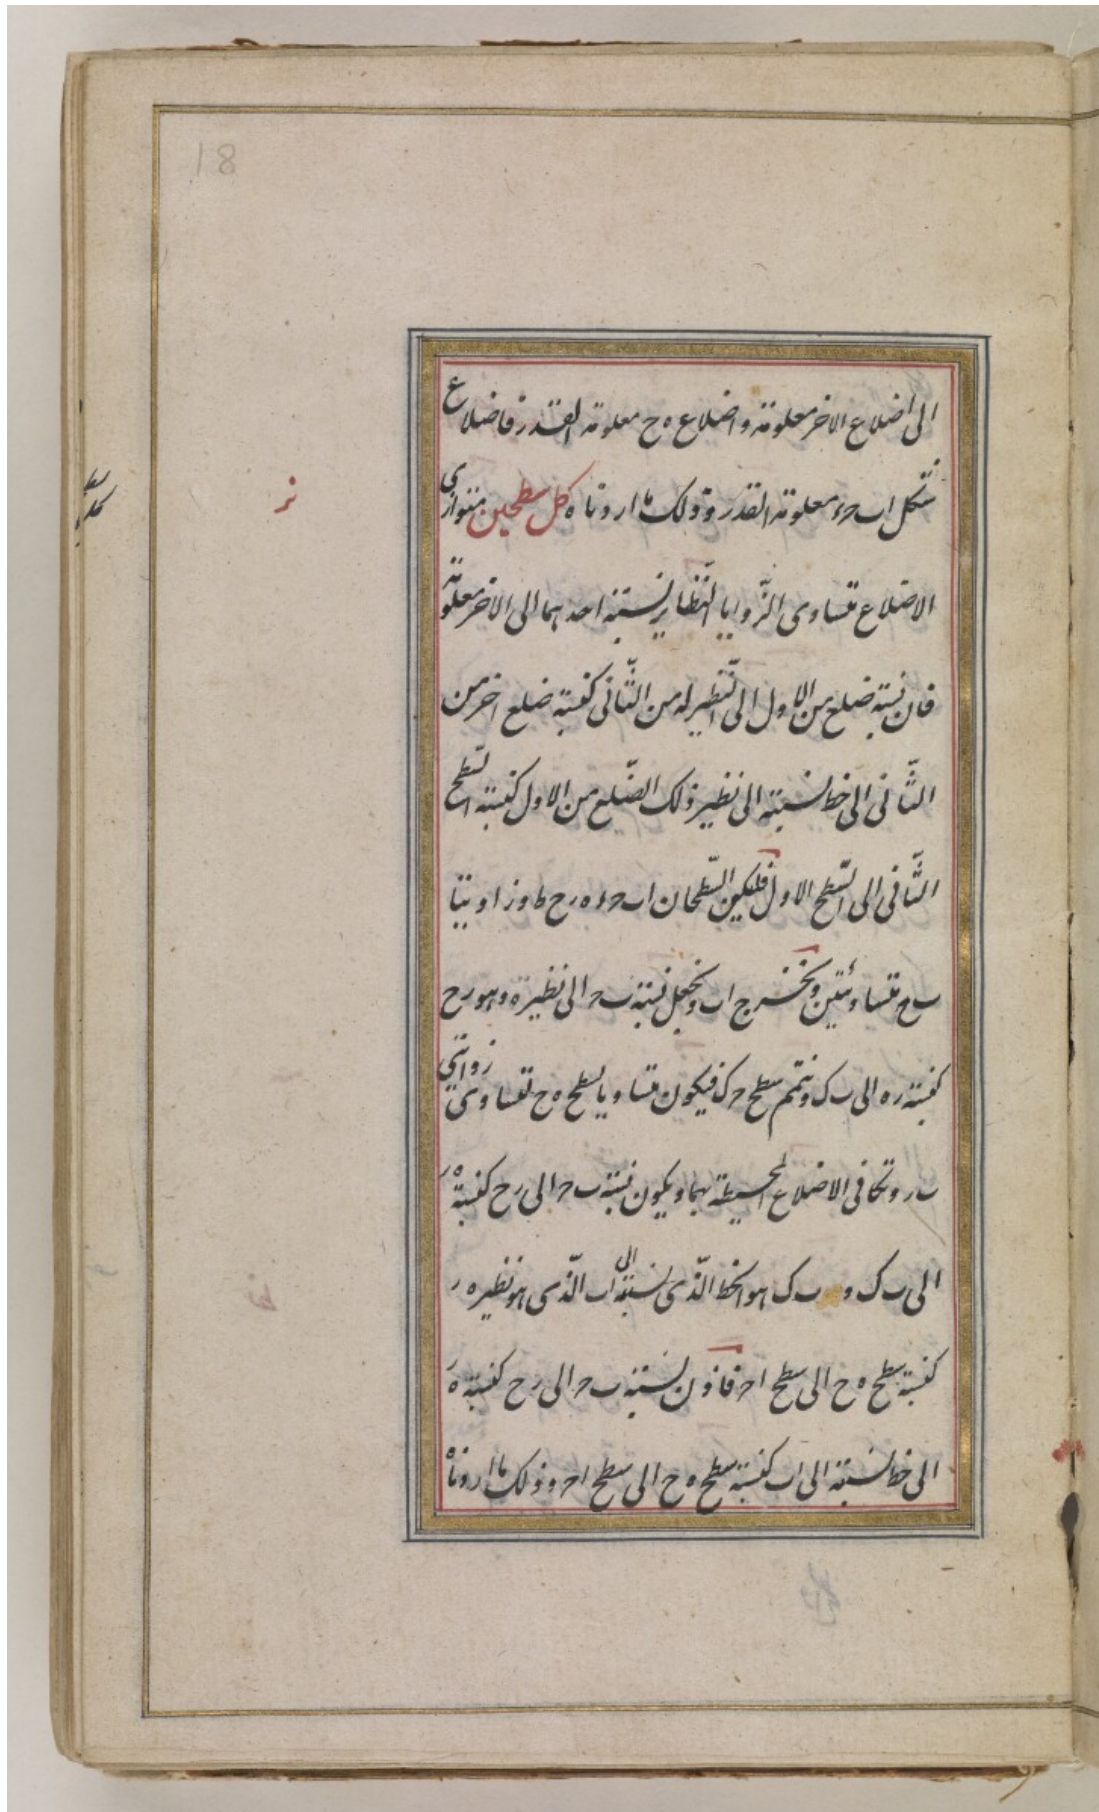 18
الى اضلاع الاخر معلومة واضلاع ه ح معلومة القدر فاضلاع
شكل ا ب ح د معلومة القدر وذلك ما اردناه كل سطحين متوازى
نر
الاضلاع متساوى الزّوايا النّظاير نسبة احدهما الى الاخر معلومة
فان نسبة ضلع من الاول الى النّظير له من الثّانى كنسبة ضلع اخر من
الثّانى الى خط نسبته الى نظير ذلك الضّلع من الاول كنسبة السّطح
الثّانى الى السّطح الاول فليكن السّطحان ا ب ح د ه ر ح ط وزاويتا
ب ر متساويتين ونخرج ا ب ونجعل نسبة ب ح الى نظيره وهو ر ح
كنسبة ر ه الى ب ك ونتمم سطح ح ك فيكون متساويا لسطح ه ح لتساوى زاويتى
ب ر وتكافى الاضلاع المحيطة بهما ويكون نسبة ب ح الى ر ح كنسبة ه ر
الى ب ك و ب ك هو الخط الّذى نسبته الى ا ب الّذى هو نظير ه ر
كنسبة سطح ه ح الى سطح ا ح فاذن نسبة ب ح الى ر ح كنسبة ه ر
الى خط نسبته الى ا ب كنسبة سطح ه ح الى سطح ا ح وذلك ما اردناه